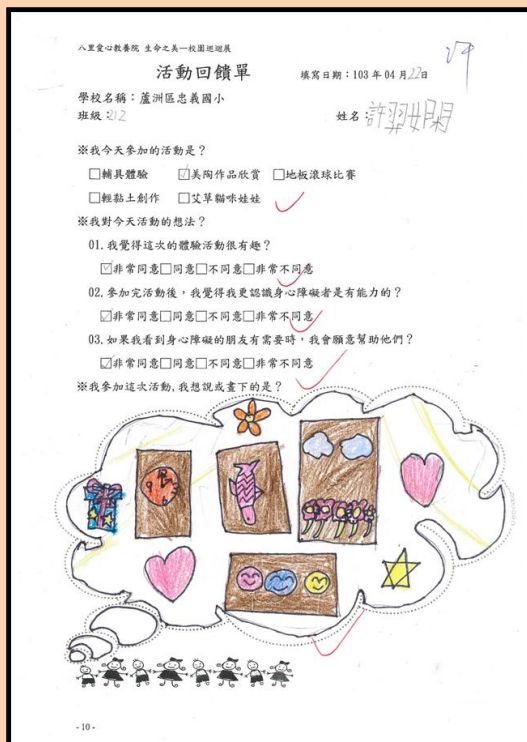 八里愛心教養院 生命之美—校園巡迴展
活動回饋單
填寫日期：103年04月22日
學校名稱：蘆洲區忠義國小
班級：212
姓名：許羿嫻
※我今天參加的活動是？
□輔具體驗 ☑美陶作品欣賞 □地板滾球比賽
□輕黏土創作 □艾草貓咪娃娃
※我對今天活動的想法？
01.我覺得這次的體驗活動很有趣？
☑非常同意□同意□不同意□非常不同意
02.參加完活動後，我覺得我更認識身心障礙者是有能力的？
☑非常同意□同意□不同意□非常不同意
03.如果我看到身心障礙的朋友有需要時，我會願意幫助他們？
☑非常同意□同意□不同意□非常不同意
※我參加這次活動,我想說或畫下的是？
-10-